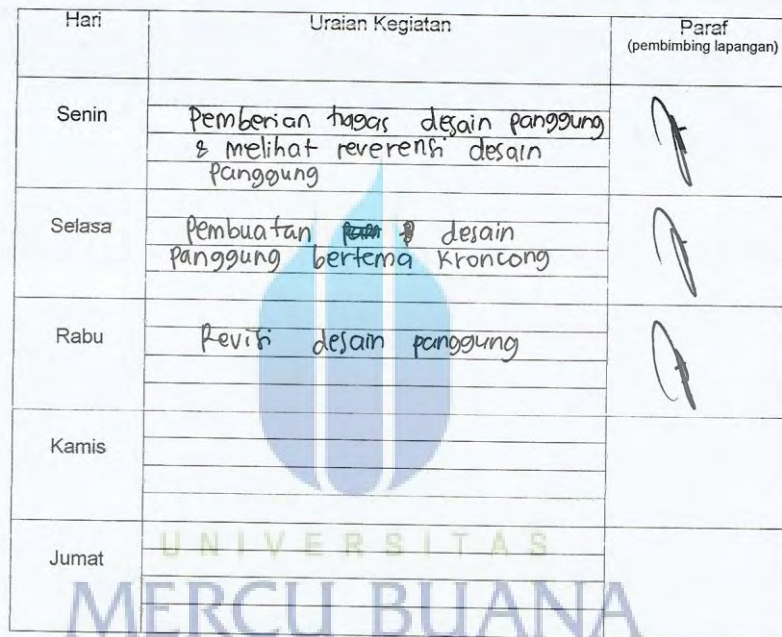 Hari Uraian Kegiatan Paraf
(pembimbing lapangan)
Senin Pemberian tugas desain panggung
& melihat reverensi desain
panggung
Selasa Pembuatan desain
panggung bertema Kroncong
Rabu Revisi desain panggung
Kamis
Jumat
UNIVERSITAS
MERCU BUANA